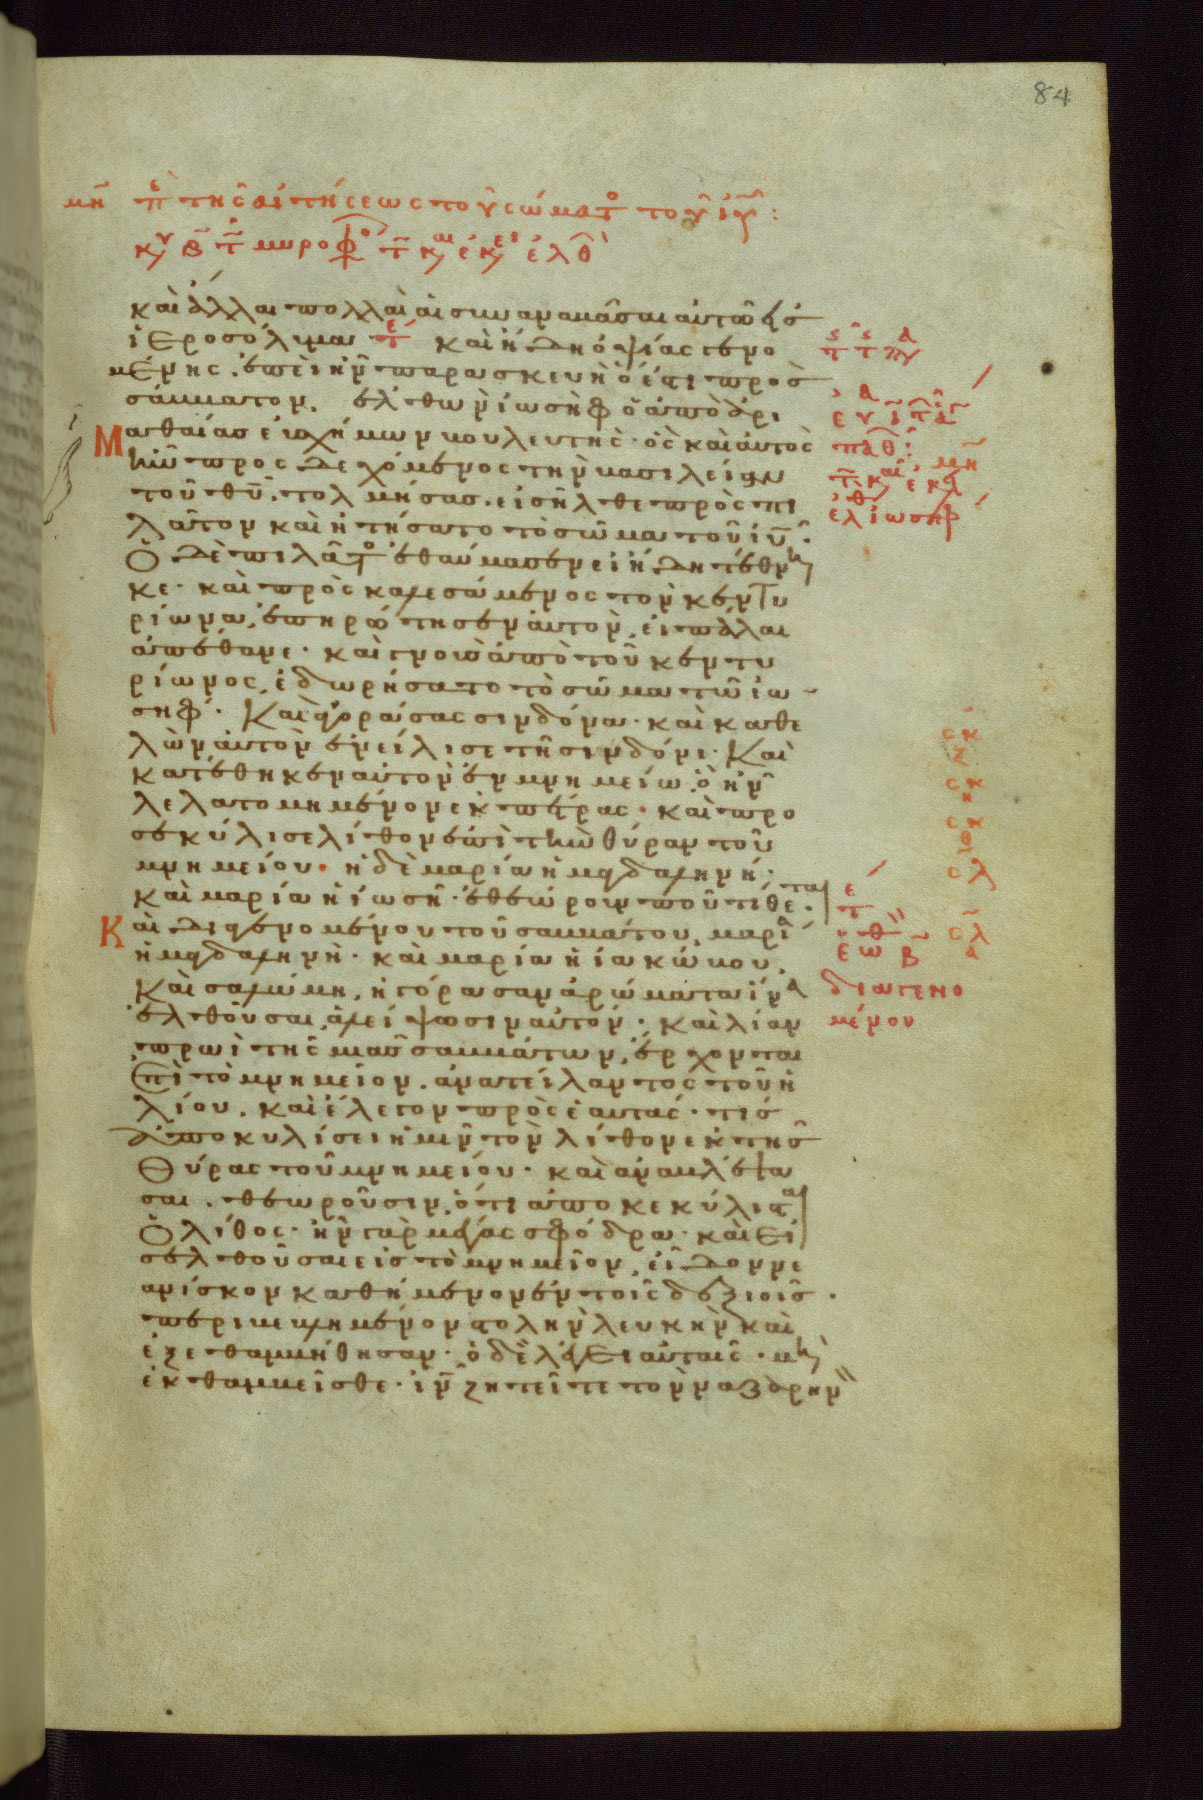 84
μη̅ π̅ε̅ τῆς αἰτήσεως τοῦ σώματο τοῦ ι̅υ̅:
κυ β τ̅ μυροφό
καὶ ἄλλαι πολλαὶ αἱ συναναβᾶσαι αὐτῶ εἰσ
ἱεροσόλυμα· τε καὶ ἤδη ὀψίας γενο
μένης. ἐπεὶ ἦν παρασκευὴ ὅ ἐστι προσ
σάββατον. ἐλθὼν ἰωσὴφ ὁ ἀπὸ ἀρι
Μαθαίας εὐσχήμων βουλευτής· ὃς καὶ αὐτὸς
ἦν προσδεχόμενος τὴν βασιλείαν
τοῦ θ̅υ̅. τολμήσας. εἰσῆλθε πρὸς πι
λᾶτον καὶ ἠτήσατο τὸ σῶμα τοῦ ι̅υ̅.
Ὁ δὲ πιλᾶτο ἐθαύμασεν εἰ ἤδη τέθνη
κε· καὶ προσκαλεσάμενος τὸν κεντυ
ρίωνα, ἐπηρώτησεν αὐτὸν, εἰ πάλαι
ἀπέθανε· καὶ γνοὺς ἀπὸ τοῦ κεντυ
ρίωνος, ἐδωρήσατο τὸ σῶμα τῶ ἰω
σήφ. Καὶ ἀγοράσας σινδόνα· καὶ καθε
λὼν αὐτὸν ἐνείλισε τῆ σινδόνι· Καὶ
κατέθηκεν αὐτὸν ἐν μνημείω, ὃ ἦν
λελατομημένον ἐκ πέτρας· καὶ προ
σεκύλισε λίθον ἐπὶ τὴν θύραν τοῦ
μνημείου· ἡ δὲ μαρία ἡ μαγδαληνή·
καὶ μαρία ἡ ἰωσῆ· ἐθεώρουν ποῦ τίθεται·
Καὶ διαγενομένου τοῦ σαββάτου, μαρία
ἡ μαγδαληνὴ· καὶ μαρία ἡ ἰακώβου,
Καὶ σαλώμη, ἠγόρασαν ἀρώματα ἵνα
ἐλθοῦσαι, ἀλείψωσιν αὐτόν· καὶ λίαν
πρωὶ τῆς μιᾶς σαββάτων, ἔρχονται
ἐπὶ τὸ μνημεῖον. ἀνατείλαντος τοῦ ἡ
λίου. καὶ ἔλεγον πρὸς ἑαυτάς· τίς
ἀποκυλίσει ἡμῖν τὸν λίθον ἐκ τῆς
θύρας τοῦ μνημείου· καὶ ἀναβλέψα
σαι. θεωροῦσιν, ὅτι ἀποκεκύλισται
Ὁ λίθος· ἦν γὰρ μέγας σφόδρα· καὶ εἰ
σελθοῦσαι εἰς τὸ μνημεῖον, εἶδον νε
ανίσκον καθήμενον ἐν τοῖς δεξιοῖς.
περιβεβλημένον στολὴν λευκὴν καὶ
ἐξεθαμβήθησαν· ὁ δὲ λέγει αὐταῖς· μὴ
ἐκθαμβεῖσθε· ι̅ν̅ ζητεῖτε τὸν ναζαρην
διαγενο
μένου